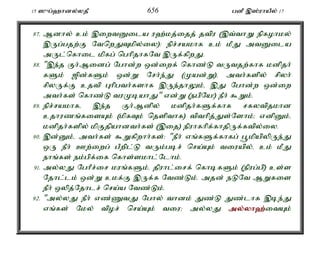 15 ஸுப்ஹானல்லதீ 656 பனீ இஸ்ராயீல் 17
87. ஆனால் உம் இறைவனுடைய ரஹ்மத்தைத் தவிர (இவ்வாறு நிகழாமல்
இருப்பதற்கு வேறெதுவுமில்லை); நிச்சயமாக உம் மீது அவனுடைய
அருட்கொடை மிகப் பெரிதாகவே இருக்கிறது.
88. "இந்த குர்ஆனைப் போன்ற ஒன்றைக் கொண்டு வருவதற்காக மனிதர்
களும் ஜின்களும் ஒன்று சேர்ந்து (முயன்று), அவர்களில் சிலர்
சிலருக்கு உதவி புரிபவர்களாக இருந்தாலும், இது போன்ற ஒன்றை
அவர்கள் கொண்டு வரமுடியாது" என்று (நபியே!) நீர் கூறும்.
89. நிச்சயமாக, இந்த குர்ஆனில் மனிதர்களுக்காக சகலவிதமான
உதாரணங்களையும் (மிகவும் தெளிவாக) விவரித்துள்ளோம்; எனினும்,
மனிதர்களில் மிகுதியானவர்கள் (இதை) நிராகரிக்காதிருக்கவில்லை.
90. இன்னும், அவர்கள் கூறுகிறார்கள்: "நீர் எங்களுக்காகப் பூமியிலிருந்து
ஒரு நீர் ஊற்றைப் பீறிட்டு வரும்படி செய்யும் வரையில், உம் மீது
நாங்கள் நம்பிக்கை கொள்ளமாட்டோம்.
91. அல்லது பேரீச்சை மரங்களும், திராட்சைக் கொடிகளும் (நிரப்பி) உள்ள
தோட்டம் ஒன்று உமக்கு இருக்க வேண்டும். அதன் நடுவே ஆறுகளை
நீர் ஒலித்தோடச் செய்ய வேண்டும்.
92. "அல்லது நீர் எண்ணுவது போல் வானம் துண்டு துண்டாக இடிந்து
எங்கள் மேல் விழச் செய்யும் வரை; அல்லது அல்லாஹ்வையும்